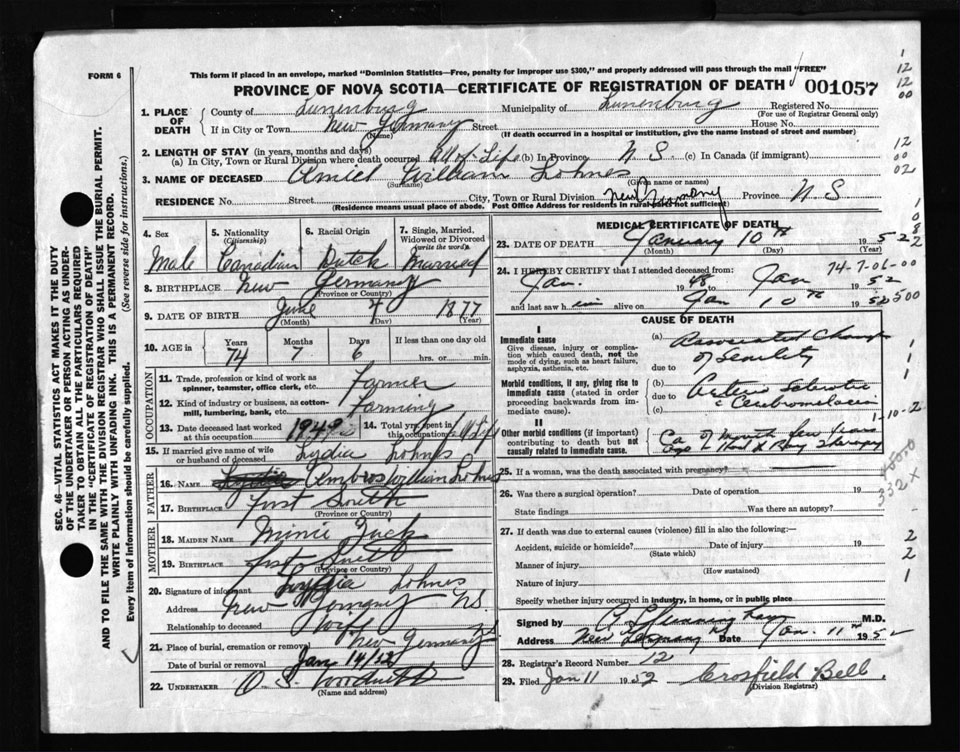 FORM 6
This form if placed in an envelope, marked "Dominion Statistics—Free, penalty for improper use $300," and properly addressed will pass through the mail "FREE"
PROVINCE OF NOVA SCOTIA—CERTIFICATE OF REGISTRATION OF DEATH 001057
1. PLACE OF DEATH County of Lunenburg Municipality of Lunenburg Registered No. (For use of Registrar General only)
If in City or Town New Germany (Name) Street House No.
(If death occurred in a hospital or institution, give the name instead of street and number)
2. LENGTH OF STAY (in years, months and days)
(a) In City, Town or Rural Division where death occurred all of Life (b) In Province N. S. (c) In Canada (if immigrant)
3. NAME OF DECEASED William Lohnes
(Surname) (Given name or names)
RESIDENCE No. Street City, Town or Rural Division New Germany Province N. S.
(Residence means usual place of abode. Post Office Address for residents in rural parts not sufficient)
4. Sex Male
5. Nationality (Citizenship) Canadian
6. Racial Origin Dutch
7. Single, Married, Widowed or Divorced (write the word) Married
8. BIRTHPLACE New Germany
(Province or Country)
9. DATE OF BIRTH June 4 1877
(Month) (Day) (Year)
10. AGE in Years 74 Months 7 Days 6 If less than one day old hrs. or min.
OCCUPATION
11. Trade, profession or kind of work as spinner, teamster, office clerk, etc. Farmer
12. Kind of industry or business, as cotton-mill, lumbering, bank, etc. Farming
13. Date deceased last worked at this occupation 1949
14. Total yrs. spent in this occupation all Life
15. If married give name of wife or husband of deceased Lydia Lohnes
FATHER
16. NAME William Lohnes
17. BIRTHPLACE first South
(Province or Country)
MOTHER
18. MAIDEN NAME
19. BIRTHPLACE first South
(Province or Country)
20. Signature of informant Lydia Lohnes
Address New Germany NS.
Relationship to deceased wife
21. Place of burial, cremation or removal New Germany
Date of burial or removal Jan 14/52
22. UNDERTAKER O. S.
(Name and address)
MEDICAL CERTIFICATE OF DEATH
23. DATE OF DEATH January 10th 1952
(Month) (Day) (Year)
74-7-06-00
24. I HEREBY CERTIFY that I attended deceased from:
Jan. 1948 to Jan 1952
and last saw him alive on Jan 10th 1952
CAUSE OF DEATH
I
Immediate cause
Give disease, injury or complication which caused death, not the mode of dying, such as heart failure, asphyxia, asthenia, etc.
(a) Associated Change of Senility
due to
Morbid conditions, if any, giving rise to immediate cause (stated in order proceeding backwards from immediate cause).
(b) Arterio Sclerotic
due to
(c) Cerebromalacia
1-10-2
II
Other morbid conditions (if important) contributing to death but not causally related to immediate cause.
Ca of mouth few years ago Ray Therapy
25. If a woman, was the death associated with pregnancy?
26. Was there a surgical operation? Date of operation 19
State findings Was there an autopsy?
332X
27. If death was due to external causes (violence) fill in also the following:-
Accident, suicide or homicide? Date of injury 19
(State which)
Manner of injury
(How sustained)
Nature of injury
Specify whether injury occurred in industry, in home, or in public place
Signed by M.D.
Address New Germany NS Date Jan. 11th 1952
28. Registrar's Record Number 12
29. Filed Jan 11 1952 Crosfield Bell
(Division Registrar)
SEC. 46—VITAL STATISTICS ACT MAKES IT THE DUTY OF THE UNDERTAKER OR PERSON ACTING AS UNDERTAKER TO OBTAIN ALL THE PARTICULARS REQUIRED IN THE "CERTIFICATE OF REGISTRATION OF DEATH" AND TO FILE THE SAME WITH THE DIVISION REGISTRAR WHO SHALL ISSUE THE BURIAL PERMIT.
WRITE PLAINLY WITH UNFADING INK. THIS IS A PERMANENT RECORD.
Every item of information should be carefully supplied. (See reverse side for instructions.)
12
12
00
12
00
02
1
0
8
2
1
1
1
2
2
1